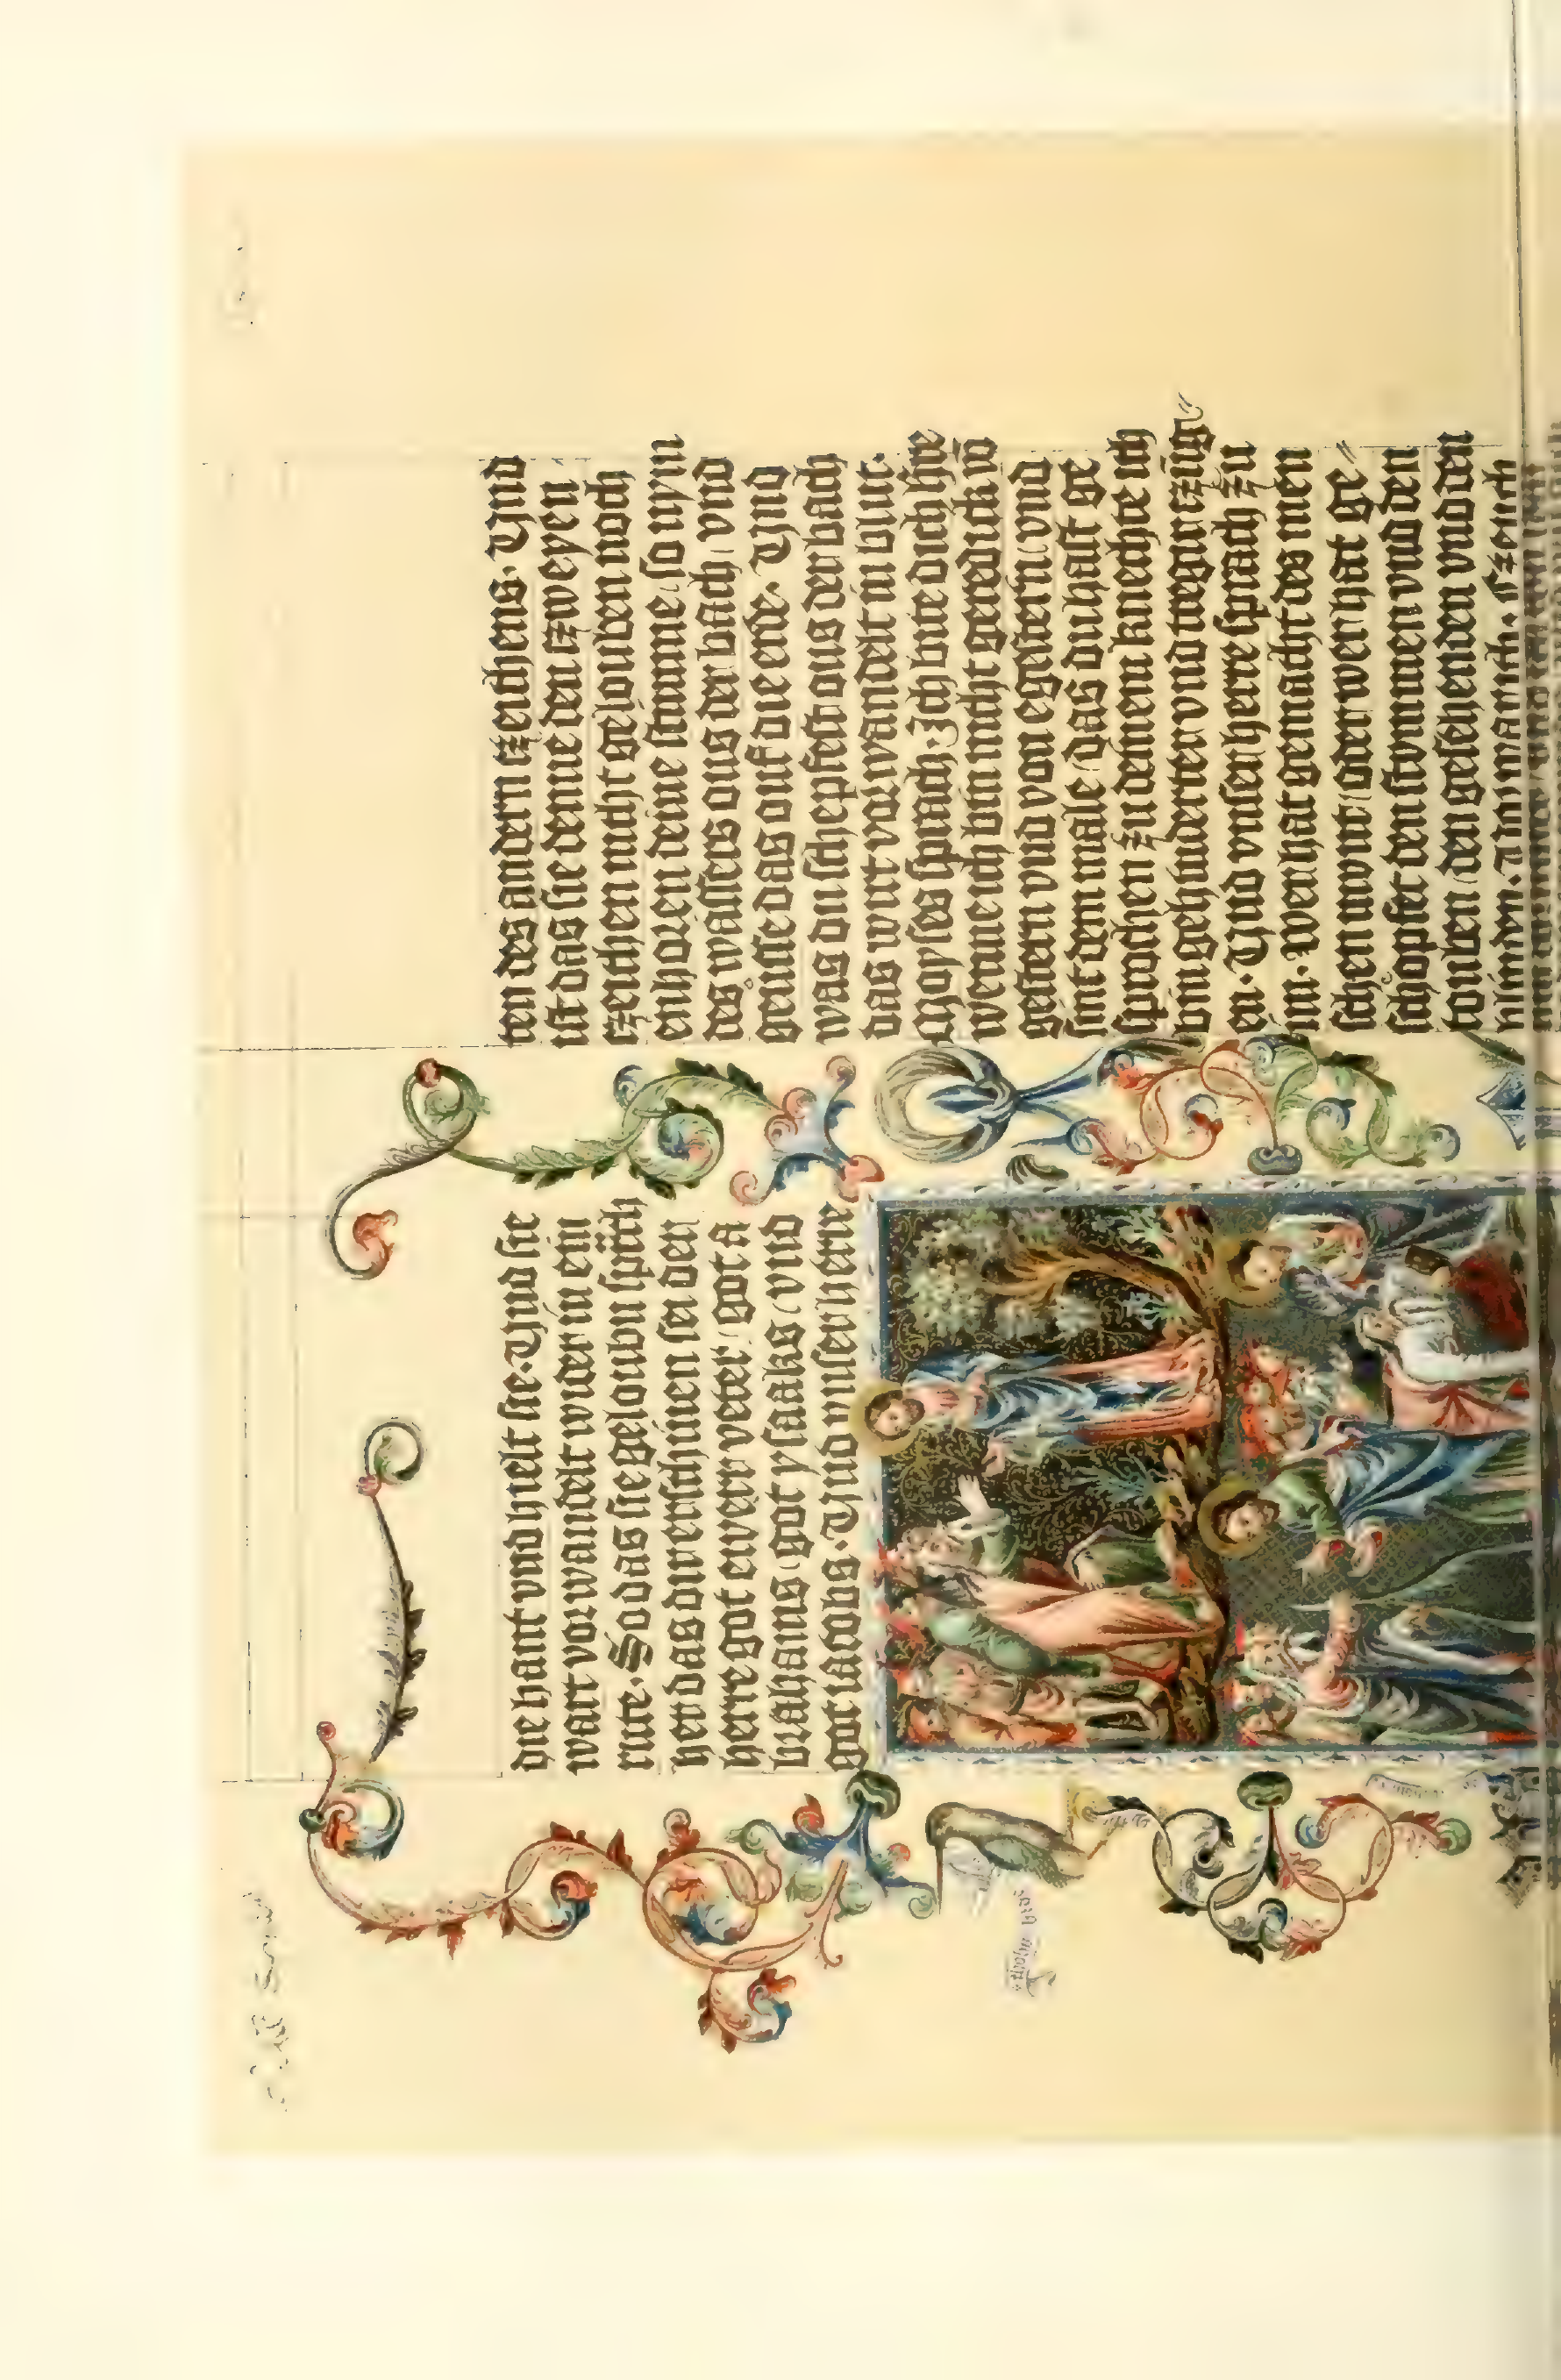 die hant vnd hielt sie. Vnd sie
wart vorwandelt wider in ein
rute. So das sie geloubin sprach
her das dir erschinen sei der
herre got eiverr veter, got a
brahams, got ysaaks, vnd
got iacobs. Vnd vnser herre
ten des andern tzeichens. Vnd
ist das sie denne den tzweyen
tzeichen nicht gelouben noch
enhoren deine stimme, so nym
des wassers ous der bach, vnd
geusse das ouf die erde. Vnd
was du schepfest ous der bach
das wirt vorwandelt in blut.
Moyses sprach. Ich bite dich hre
wenne ich bin nicht geredick vō
gestern vnd von egestern, vnd
sint dem male, das du hast ge
sprochen zu deinem knechte ich
bin gehinderter vnd tregir tzūg
en. Vnd vnser herre sprach zu
im. Wer hat gemacht des men
schen munt, oder wer hat ge
schopfet den stummen vnd den
touben, den gesehenden vnd den
blinden.